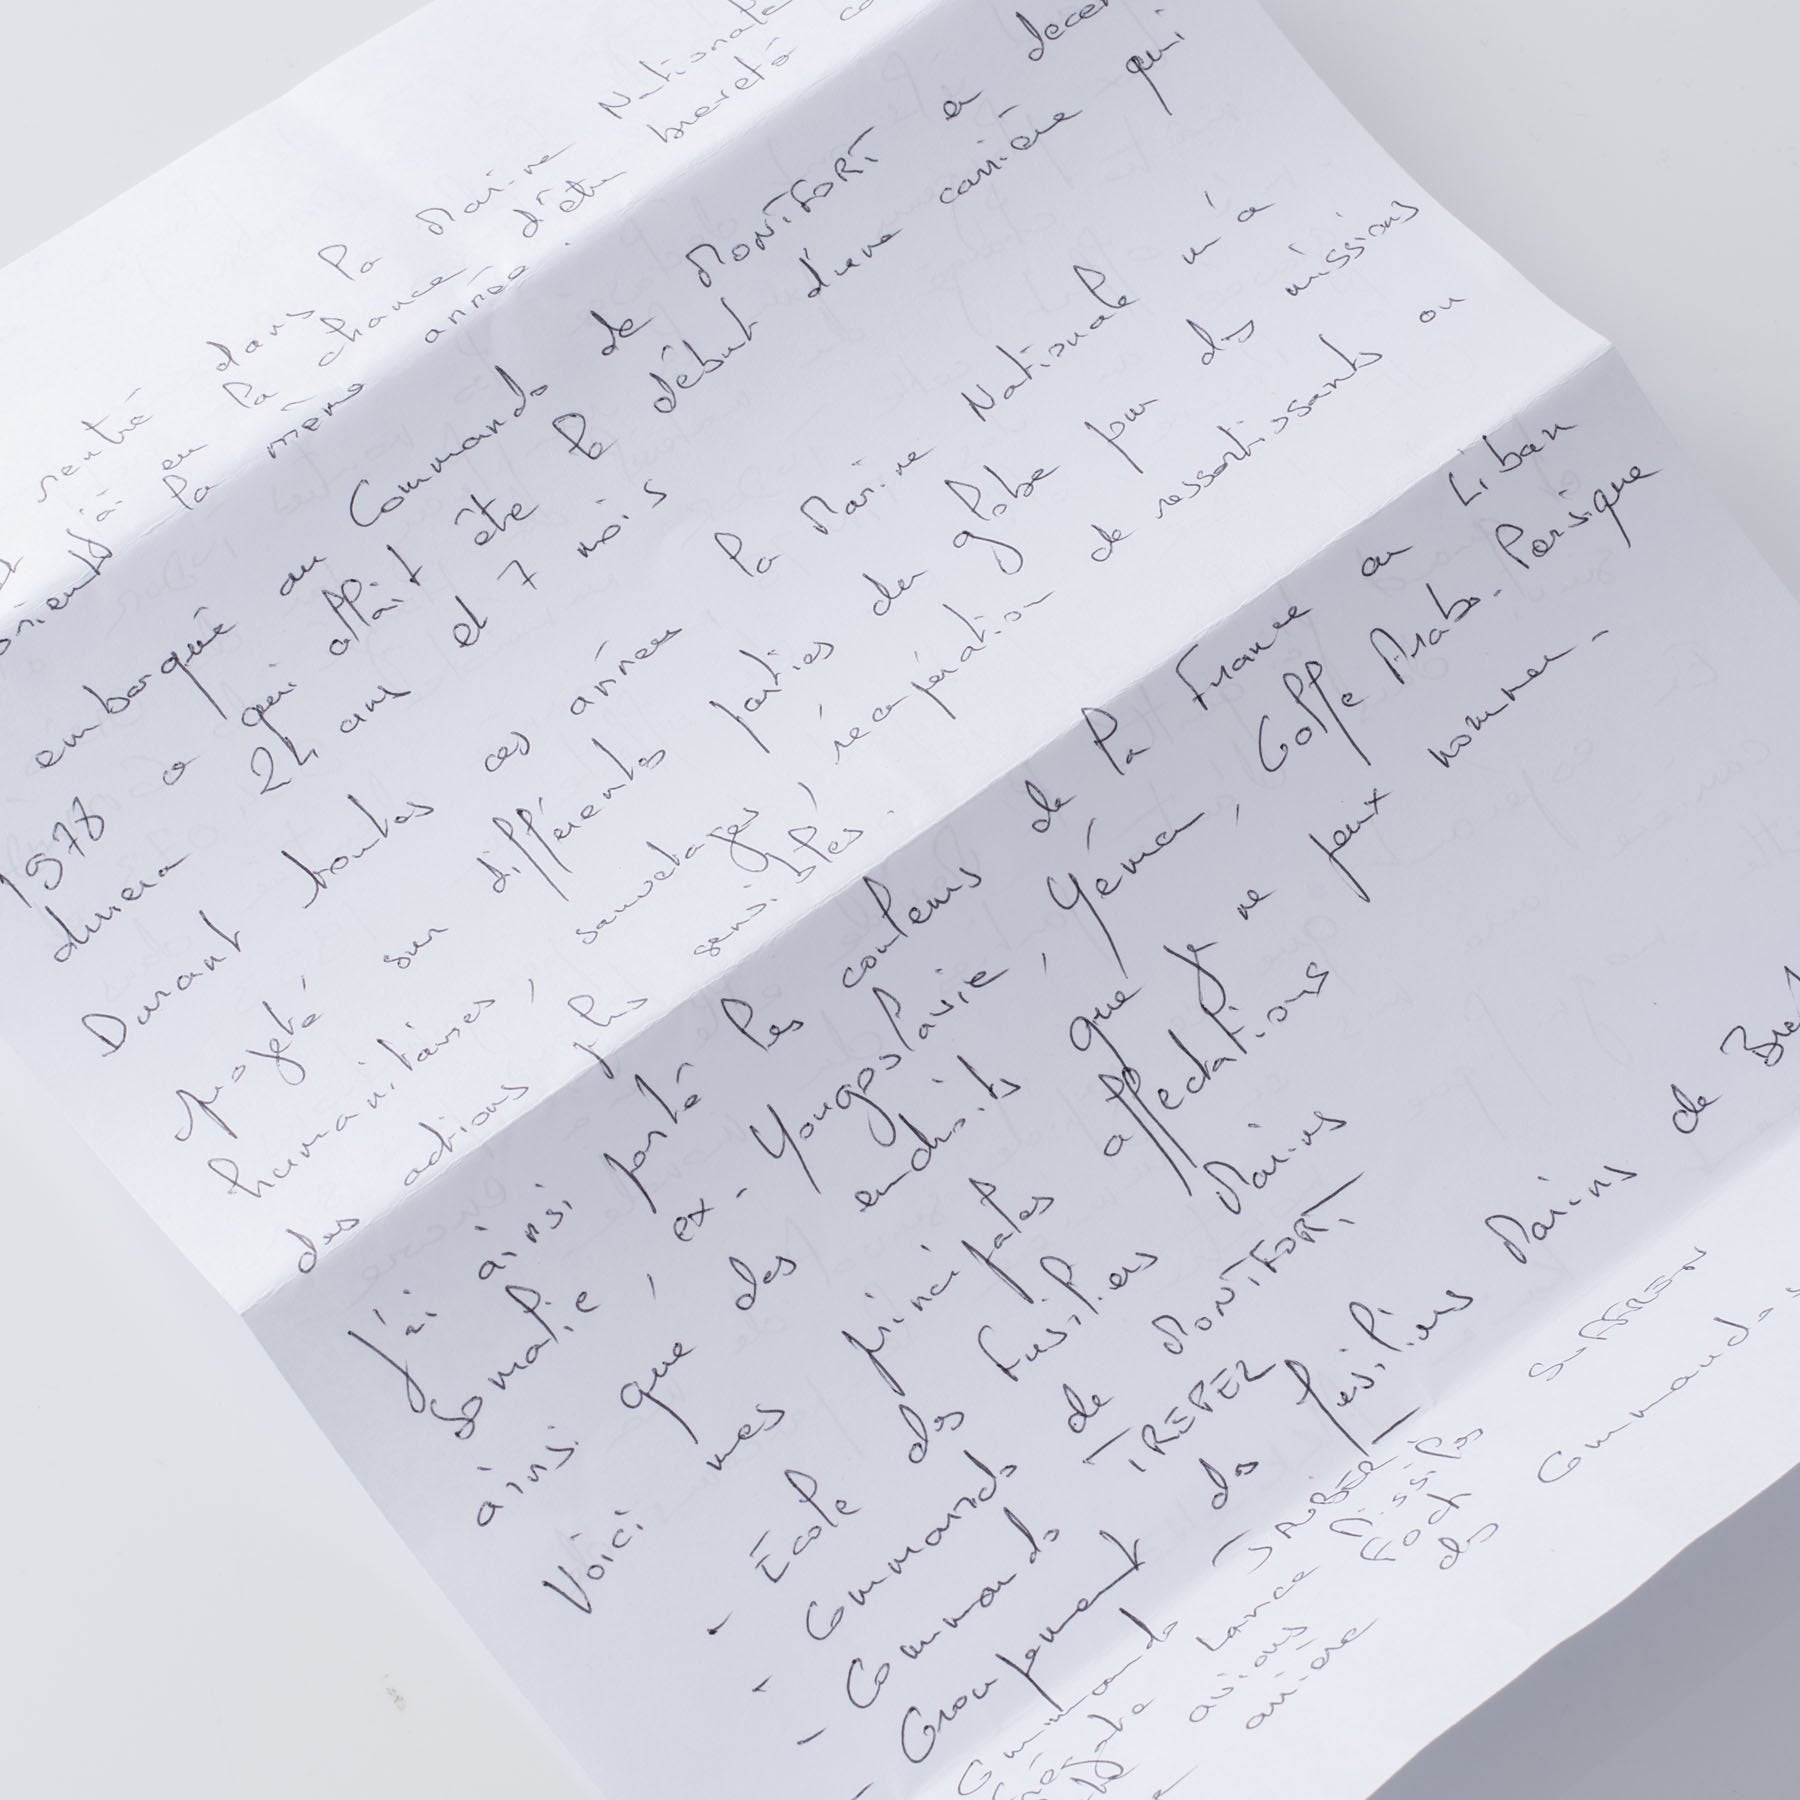 rentré dans la Marine Nationale
orienté j'ai eu la chance d'être breveté
la même année.
embarqué au Commando de MONTFORT en
1978 ce qui allait être le début d'une carrière qui
durera 24 ans et 7 mois
Durant toutes ces années la Marine Nationale m'a
projeté sur différents parties du globe pour des missions
humanitaires, sauvetages, récupération de ressortissants ou
des actions plus sensibles.
J'ai ainsi porté les couleurs de la France au Liban
Somalie, ex-Yougoslavie, Yémen, Golfe Arabo-Persique
ainsi que des endroits que je ne peux nommer.
Voici mes principales affectations
- Ecole des Fusiliers Marins
- Commando de MONTFORT
- Commando TREPEL
- Groupement des fusiliers Marins de
Commando JAUBERT
Frégate Lance Missiles SUFFREN
avions Foch
arrière des Commandos